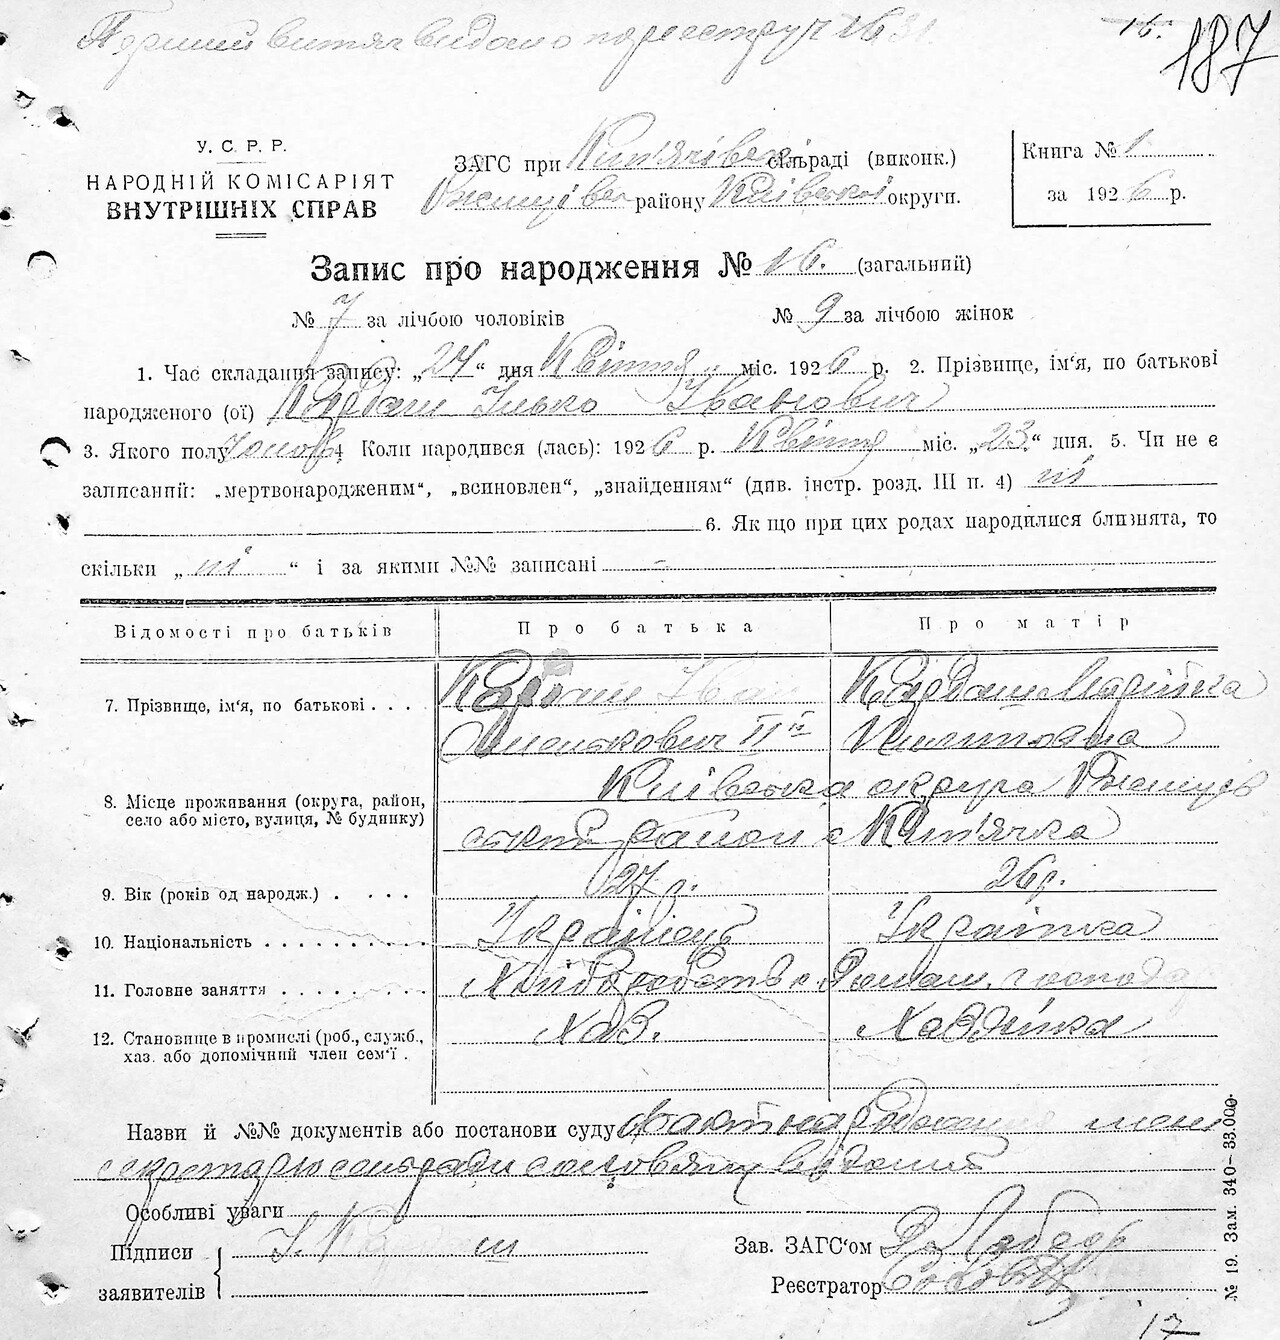 Перший витяг видано по реєстру № 1631.
16.
187
У. С. Р. Р.
НАРОДНІЙ КОМІСАРІЯТ
ВНУТРІШНІХ СПРАВ
ЗАГС при Кип'ячівск сільраді (виконк.)
Ржищівск району Київської округи.
Книга № 1
за 1926 р.
Запис про народження № 16. (загальний)
№ 7 за лічбою чоловіків № 9 за лічбою жінок
1. Час складання запису: „24“ дня Квітня міс. 1926 р. 2. Прізвище, ім‘я, по батькові
народженого (ої) Кардаш Ілько Іванович
3. Якого полу Чолов 4 Коли народився (лась): 1926 р. Квітня міс. „23“ дня. 5. Чи не є
записаний: „мертвонародженим“, „всиновлен“, „знайденням“ (див. інстр. розд. III п. 4) ні
6. Як що при цих родах народилися близнята, то
скільки „ні“ і за якими №№ записані -
Відомості про батьків Про батька Про матір
7. Прізвище, ім‘я, по батькові . . . . Кардаш Іван Кардаш Марійка
II Пилиповна
8. Місце проживання (округа, район, Київська округа Ржищів
село або місто, вулиця, № будинку) ський район с Кип'ячка
9. Вік (років од народж.) . . . . . 27 р. 26 р.
10. Національність . . . . . . . . . Українець Українка
11. Головне заняття . . . . . . . . Хліборобство Домаш. господар
12. Становище в промислі (роб., служб., Хаз. Хазяйка
хаз. або допомічний член сем‘ї .
Назви й №№ документів або постанови суду факт народження мені
секретарю сельради видомий
Особливі уваги
Підписи І. Кардаш Зав. ЗАГС‘ом
заявителів Реєстратор
№ 19. Зам. 340–33.000
17